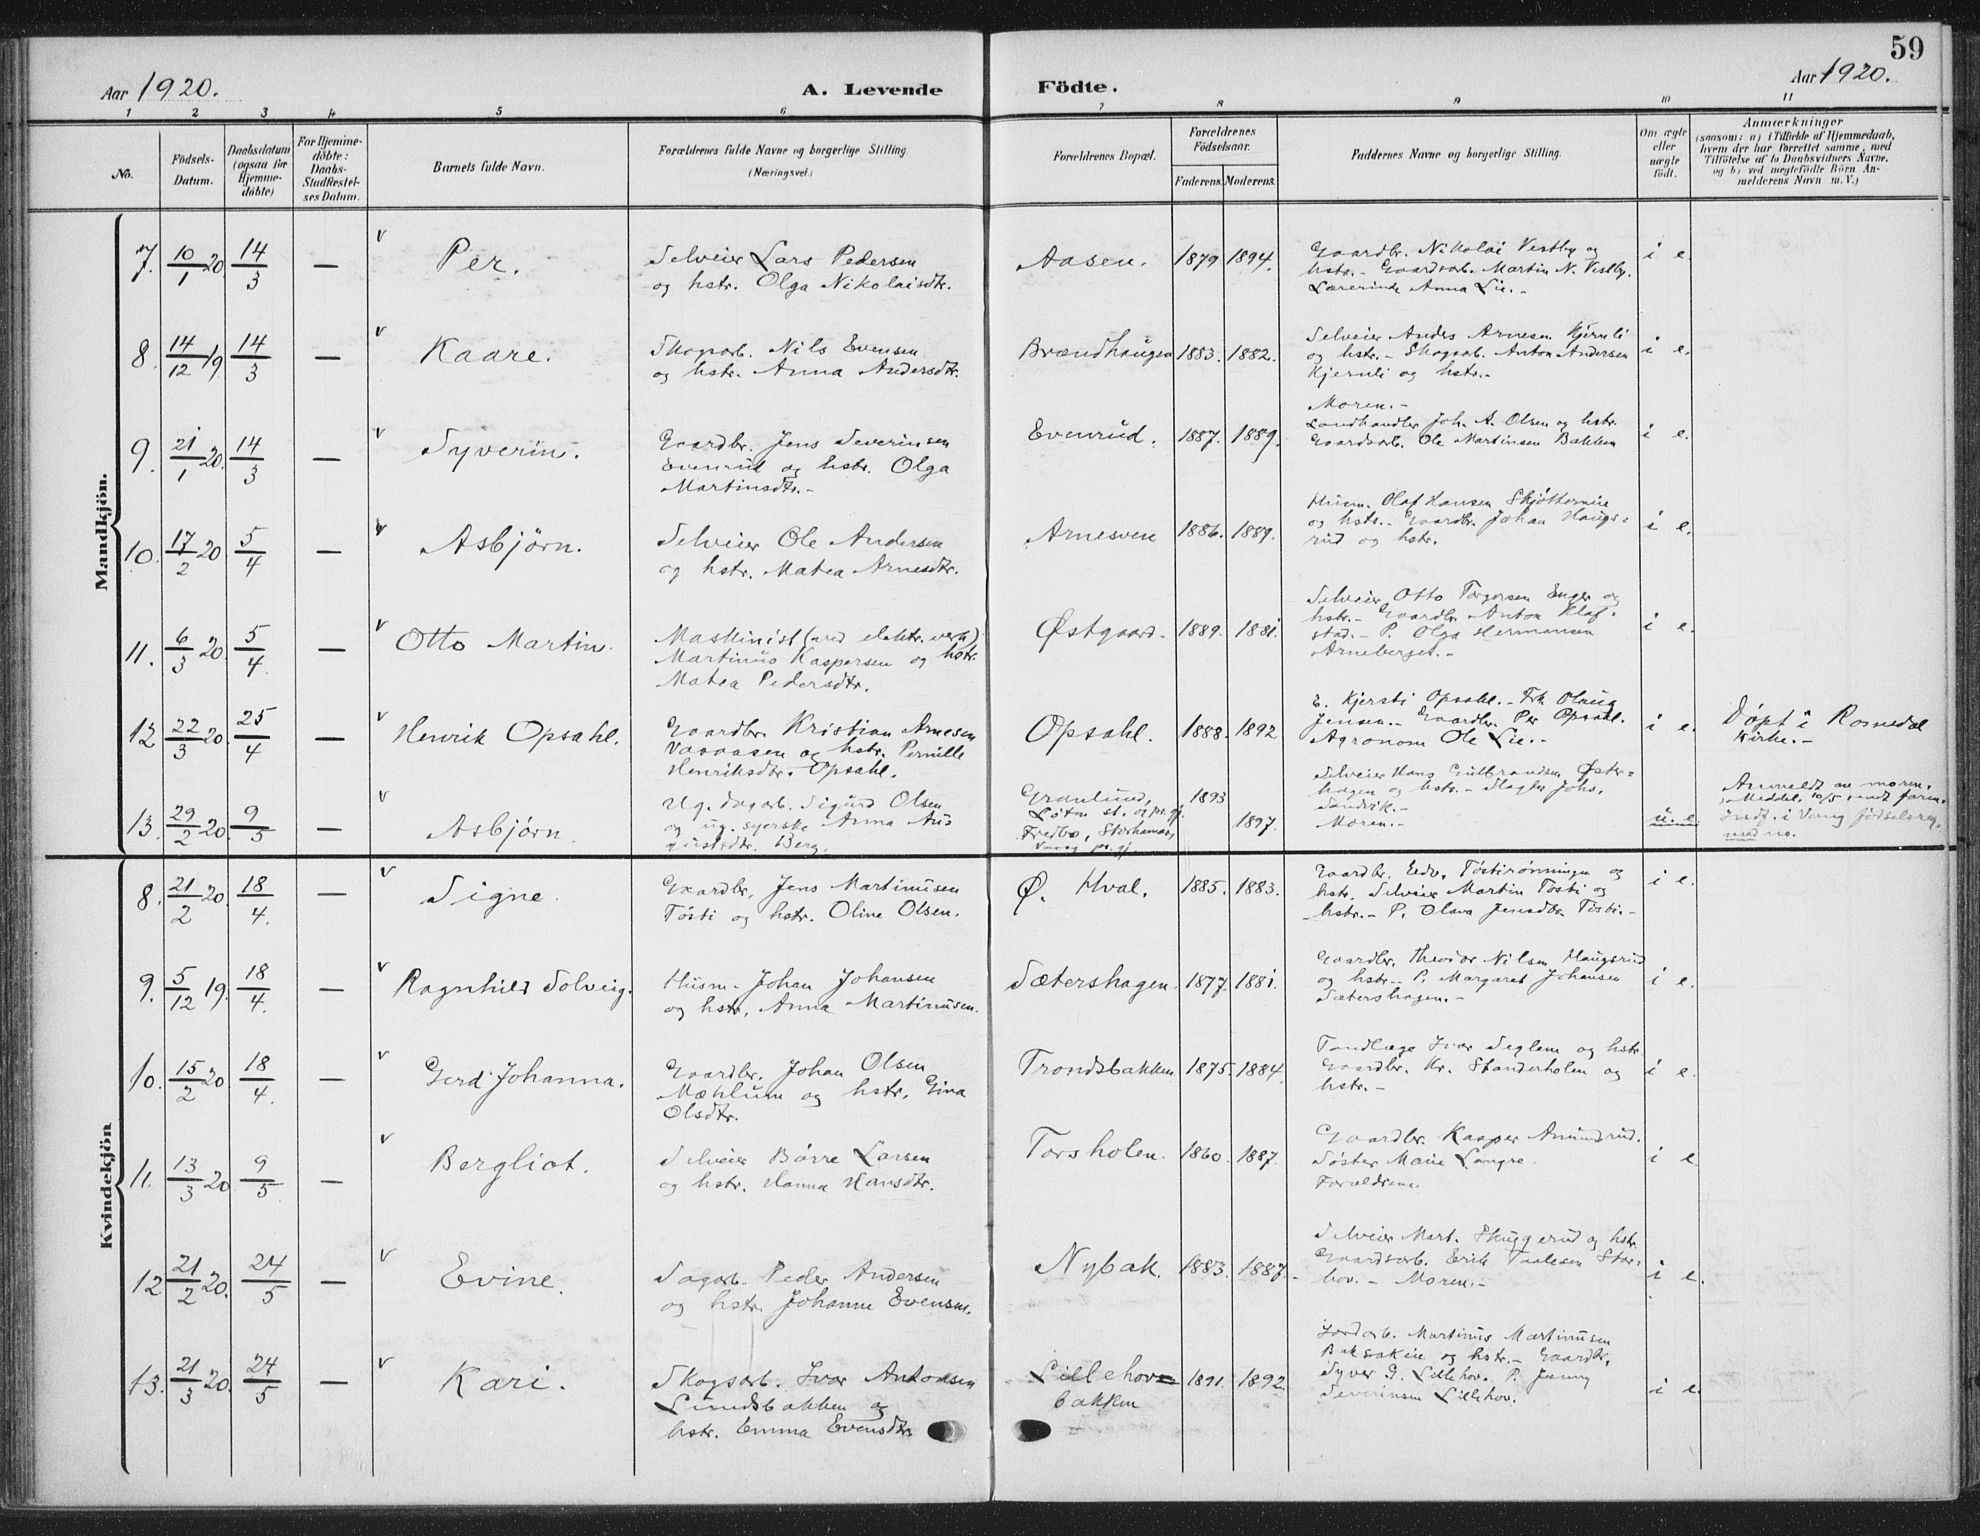 59
Aar 1920.
A. Levende
Födte.
Aar 1920.
1 2 3 4 5 6 7 8 9 10 11
No.
Födsels-
Datum.
Daabsdatum
(ogsaa for
Hjemme-
döbte)
For Hjemme-
döbte:
Daabs-
Stadfæstel-
ses Datum.
Barnets fulde Navn.
Forældrenes fulde Navne og borgerlige Stilling
(Næringsvei.)
Forældrenes Bopæl.
Forældrenes
Födselsaar.
Faderens. Moderens.
Faddernes Navne og borgerlige Stilling.
Om ægte
eller
uægte
født.
Anmærkninger
(saasom: a) i Tilfælde af Hjemmedaab,
hvem der har forrettet samme, med
Tilföielse af to Daabsvidners Navne,
og b) ved uægtefödte Börn An-
melderens Navn m. V.)
Mandkjön.
7. 10/1 20. 14/3 — v Per.
Selveier Lars Pedersen
og hstr. Olga Nikolaisdtr.
Aasen. 1879 1894.
Gaardbr. Nikolai Vestby og
hstr. - Gaardsarb. Martin N. Vestby.
Lærerinde Anna Lie. -
i e.
8. 14/12 19. 14/3 — v Kaare.
Skogsarb. Nils Evensen
og hstr. Anna Andersdtr.
Brændhaugen 1883. 1882.
Selveier Anders Arnesen Kjernli
og hstr. - Skogsarb. Anton Andersen
Kjernli og hstr. -
i e.
9. 21/1 20. 14/3 — v Syverin.
Gaardbr. Jens Severinsen
Evenrud og hstr. Olga
Martinsdtr. -
Evenrud. 1887. 1889.
Moren. -
Landhandler Joh. A. Olsen og hstr.
Gaardsarb. Ole Martinsen Bakken
i e.
10. 17/2 20 5/4 — v Asbjörn.
Selveier Ole Andersen
og hstr. Matea Arnesdtr.
Arnesven 1886. 1889.
Olaf Hansen
og hstr. - Gaardbr. Johan Haugs-
rud og hstr.
i e.
11. 6/3 20. 5/4. — v Otto Martin.
Maskinist (ved elektr. verk)
Martinus Kaspersen og hstr.
Matea Pedersdtr.
Østgaard. 1889. 1881.
Selveier Otto Torgersen Enger og
hstr. - Gaardbr. Anton Klaf-
stad. - P. Olga Hermansen
Arneberget. -
i e.
12 22/3 20. 25/4 — v Henrik Opsahl.
Gaardbr. Kristian Arnesen
Vasaasen og hstr. Pernille
Henriksdtr. Opsahl.
Opsahl. 1888. 1892
E. Kjersti Opsahl. - Frk. Olaug
Jensen. - Gaardbr. Per Opsahl.
Agronom Ole Lie. -
i e.
Døpt i Romedal
Kirke. -
13. 29/2 20. 9/5 — v Asbjörn
Ug. dagarb. Sigurd Olsen
og ug. syerske Anna Au-
gustsdtr. Berg.
Granlund,
Løten st. og pr. gj.
Fredbo, Storhamar,
Vang pr. gj.
1893
1897.
Selveier Hans Gulbrandsen Øster-
hagen og hstr. - Slagter Johs.
Sandvik. -
Moren. -
u. e.
Anmeldt av moren.
Meddel. 10/5
indf. i Vang fødselsreg.
med no.
Kvindekjön
8. 21/2 20. 18/4. — v Signe.
Gaardbr. Jens Martinusen
Tösti og hstr. Oline Olsen.
Ø. Hval. 1885. 1883.
Gaardbr. Edv. Töstirönningen og
hstr. Selveier Martin Tösti og
hstr. - P. Olava Jensdtr. Tösti. -
i e.
9. 5/12 19. 18/4. — v Ragnhild Solveig.
Husm. Johan Johansen
og hstr. Anna Martinusen.
Sætershagen. 1877. 1881.
Gaardbr. Theodor Nilsen Haugsrud
og hstr. - P. Margaret Johansen
Sætershagen. -
i e.
10. 15/2 20. 18/4. — v Gerd Johanna.
Gaardbr. Johan Olsen
Mæhlum og hstr. Gina
Olsdtr.
Trondsbakken. 1875. 1884.
Tandlæge Ivar Seglem og hstr.
Gaardbr. Kr. Standerholen og
hstr. -
i e.
11. 13/3 20. 9/5. — v Bergliot.
Selveier Börre Larsen
og hstr. Hanna Hansdtr.
Torsholen. 1860. 1887.
Gaardbr. Kasper Amundrud.
Söster Marie Langre.
Forældrene.
i e.
12 21/2 20. 24/5 — v Evine.
Dagarb. Peder Andersen
og hstr. Johanne Evensen.
Nybak. 1883. 1887.
Selveier Mart. Skuggerud og hstr.
Gaardsarb. Erik Taalesen Stor-
hov. - Moren. -
i e.
13. 21/3 20. 24/5 — v Kari.
Skogsarb. Ivar Antonsen
Lundsbakken og
hstr. Emma Evensdtr.
Lillehov-
bakken
1891. 1892.
Jordarb. Martinus Martinusen
Baksakin og hstr. - Gaardbr.
Syver G. Lillehov. P. Jenny
Severinsen Lillehov.
i e.